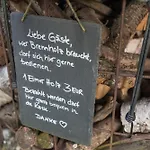 Liebe Gäste,
wer Brennholz braucht,
darf sich hier gerne
bedienen.
1 Eimer Holz 3 EUR
Bezahlt werden darf
ganz bequem in
die Kasse.
DANKE ♡